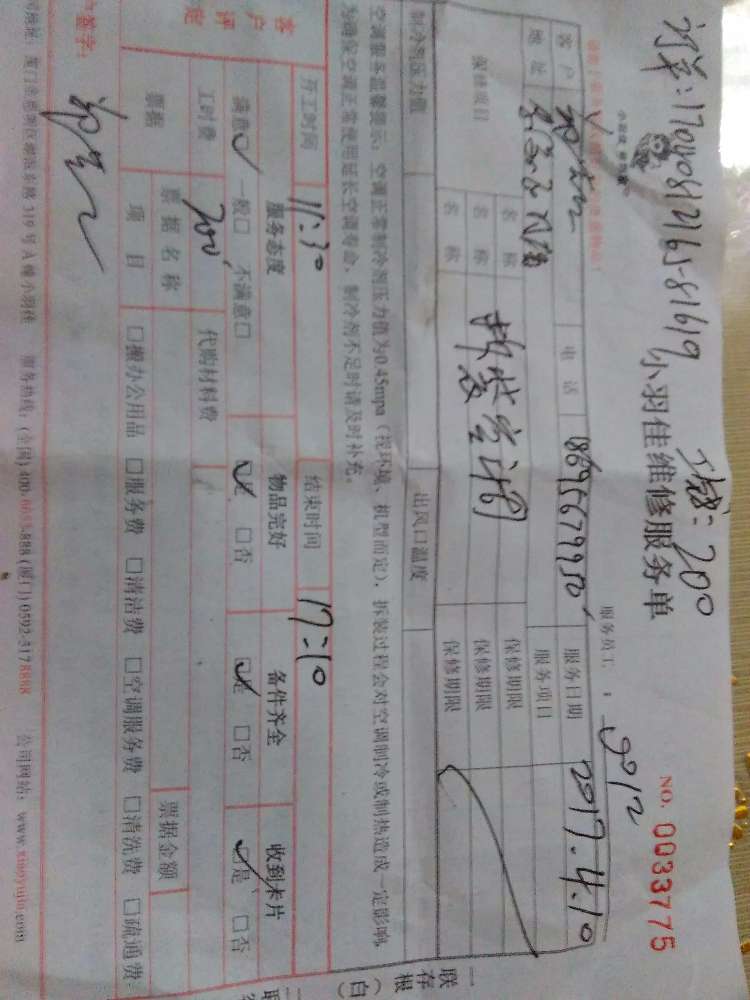 订单:17040812165-81619
工费:200
小羽佳维修服务单
NO. 0033775
服务员工: 9912
客户 电话 服务日期 2017.4.10
地址 服务项目
保修项目 名称 保修期限
名称 保修期限
名称 保修期限
制冷剂压力值 出风口温度
空调服务温馨提示:空调正常制冷剂压力值为0.45mpa(视环境、机型而定),拆装过程会对空调制冷或制热造成一定影响,
为确保空调正常使用延长空调寿命,制冷剂不足时请及时补充。
开工时间 11:30 结束时间 17:10
客户评定 服务态度 物品完好 备件齐全 收到卡片
满意☑ 一般□ 不满意□ ☑是 □否 ☑是 □否 ☑是 □否
工时费 200 代购材料费
票据 票据名称 票据金额
项目 □搬办公用品 □服务费 □清洁费 □空调服务费 □清洗费 □疏通费
签字:
319号A幢小羽佳 服务热线:(全国)400 888 (厦门)0592-5178888 公司网站:www.xiaoyujia.com
一联存根(白)